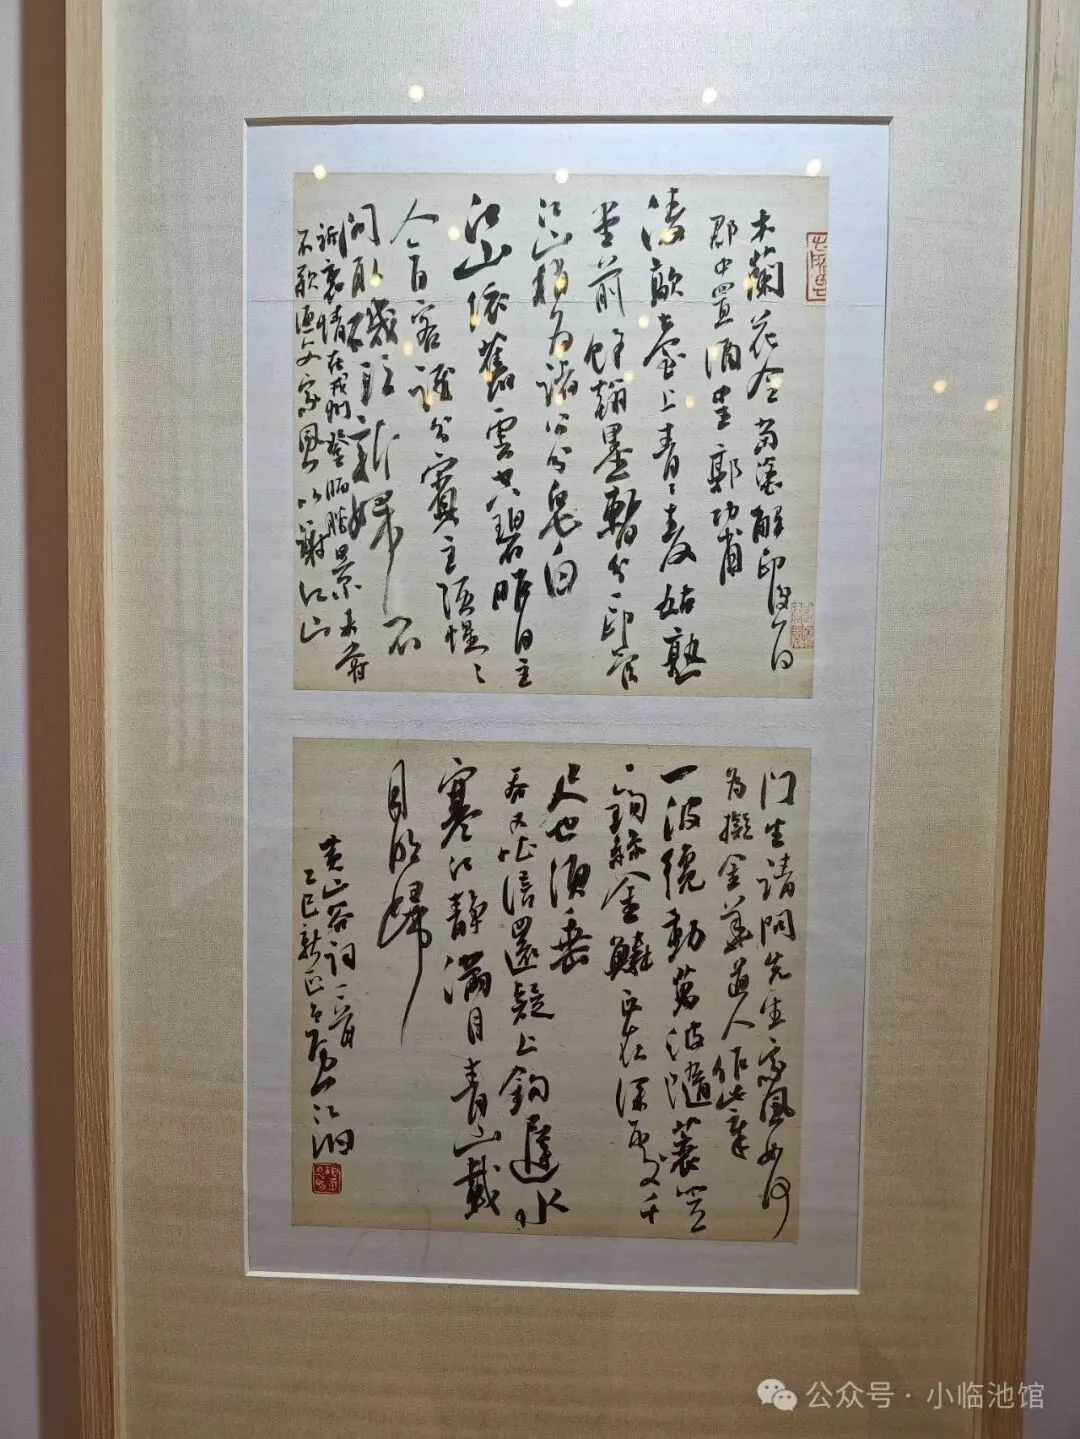 木蘭花令 當塗解印後一日
郡中置酒呈郭功甫
凌歊臺上青〻麥姑熟
堂前餘翰墨暫分一印管
江山稍为諸公分皂白
江山依舊雲空碧昨日主
人今日客誰分賓主强惺〻
問取磯頭新婦石
訴衷情在戎州登臨勝景未嘗
不歌漁父家風以謝江山
门生請問先生家風如何
為擬金華道人作此章
一波纔動萬波隨蓑笠
一鉤絲金鱗正在深處千
尺也須垂
吞又吐信還疑上鉤遲水
寒江靜滿目青山載
月明歸
黄山谷词二首
乙巳新正
公众号·小临池馆